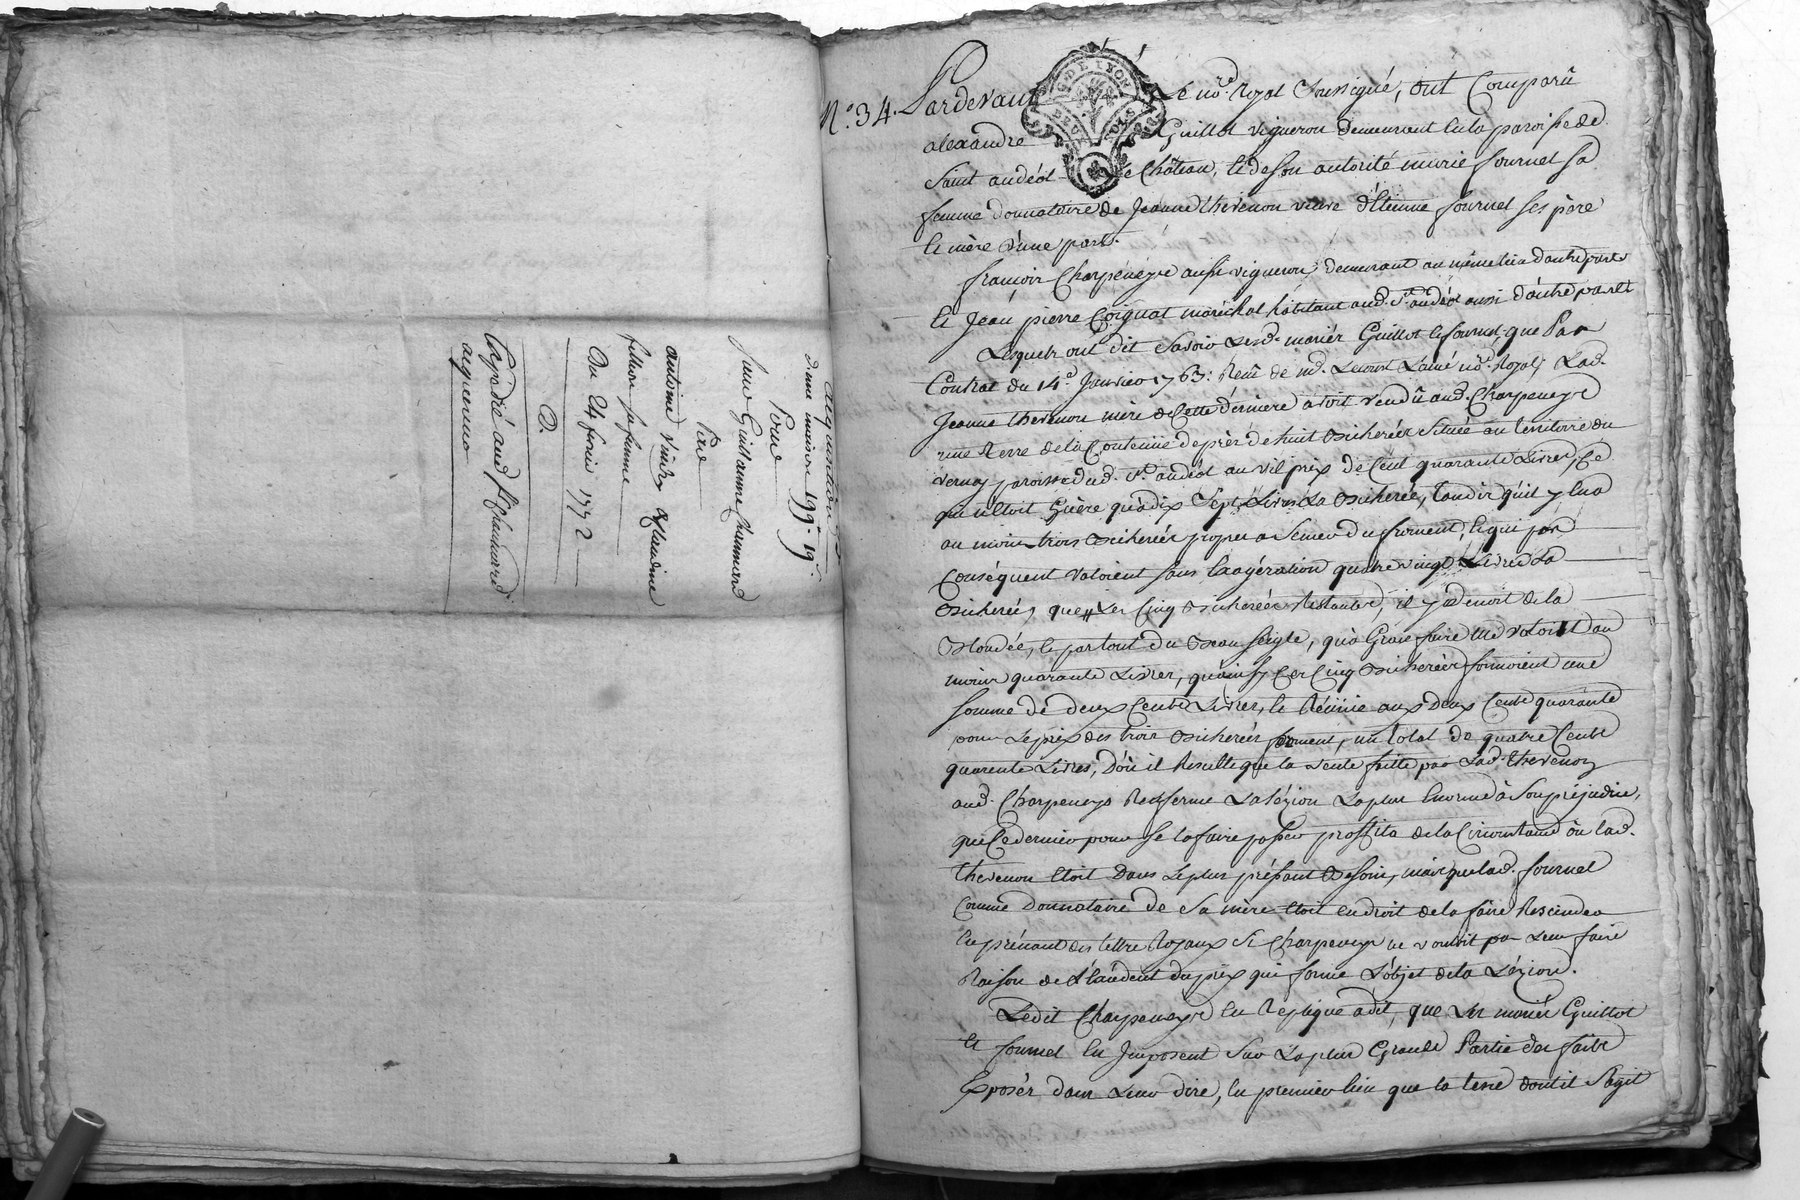 acquisition
d'une maison 199" 19s
Pour
Sieur Guillaume Chaumard
Par
antoine
filleur sa femme
Du 24 fevrier 1772
D.
Expedié aud. Sr Chaumard
acquereur
N.o 34. Pardevant Le nore. Royal Soussigné, ont Comparû
GEN. DE LYON
alexandre Guillot vigneron demeurant en la paroisse de
Saint andéol le Château, et de son autorité marie fournel sa
femme donnataire de Jeanne thevenon veuve d'Etienne fournel ses père
et mère d'une part.
françois Charpeneys aussi vigneron demeurant au même lieu d'autre part
et Jean pierre Coignat maréchal habitant aud. St. andéol aussi d'autre part
Lesquels ont dit Savoir Lesd. mariés Guillot et fournel, que Par
Contrat du 14e. Janvier 1763: Reçu de me. Lecourt L'ainé nore. Royal, Lad.
Jeanne thevenon mère de Cette dernière avoit vendû aud. Charpeneys
une terre de la Contenue de près de huit bicherées située au territoire du
vernay paroisse dud. St. andéol au vil prix de Cent quarante Livres, Ce
qui n'étoit Guère qu'à dix Sept Livres La bicherée, tandis qu'il y en a
au moins trois bicherées propres a Semer du froment, et qui par
Conséquent valoient sans Exagération quatre vingt Livres La
bicherée, que Les Cinq bicherées Restantes, il y venoit de la
blondée, et partout du beau seigle, qu'à Grace faire elle valoient au
moins quarante Livres, qu'ainsy Ces Cinq bicherées formoient une
somme de deux Cents Livres, et Réünie aux deux Cents quarante
pour Le prix des trois bicherées froment, un total de quatre Cents
quarente Livres, D'où il Resulte que la vente faitte par Lad. thevenon
aud. Charpeneys Renferme La Lézion La plus Enorme à Son préjudice,
que Ce dernier pour Se la faire passer proffita de la Circonstance où lad.
thevenon étoit Dans Le plus préssant besoin, mais que lad. fournel
Comme Donnataire de Sa mère étoit en droit de la faire Rescinder
en prenant des lettre Royaux Si Charpeneys ne vouloit pas Leur faire
Raison de L'éxcédent du prix qui forme L'objet de la Lézion.
Ledit Charpeneys en Replique a dit, que Les mariés Guillot
et fournel En Imposent Sur La plus Grande Partie des faits
Exposés dans Leur dire, en premier lieu que la terre dont il S'agit